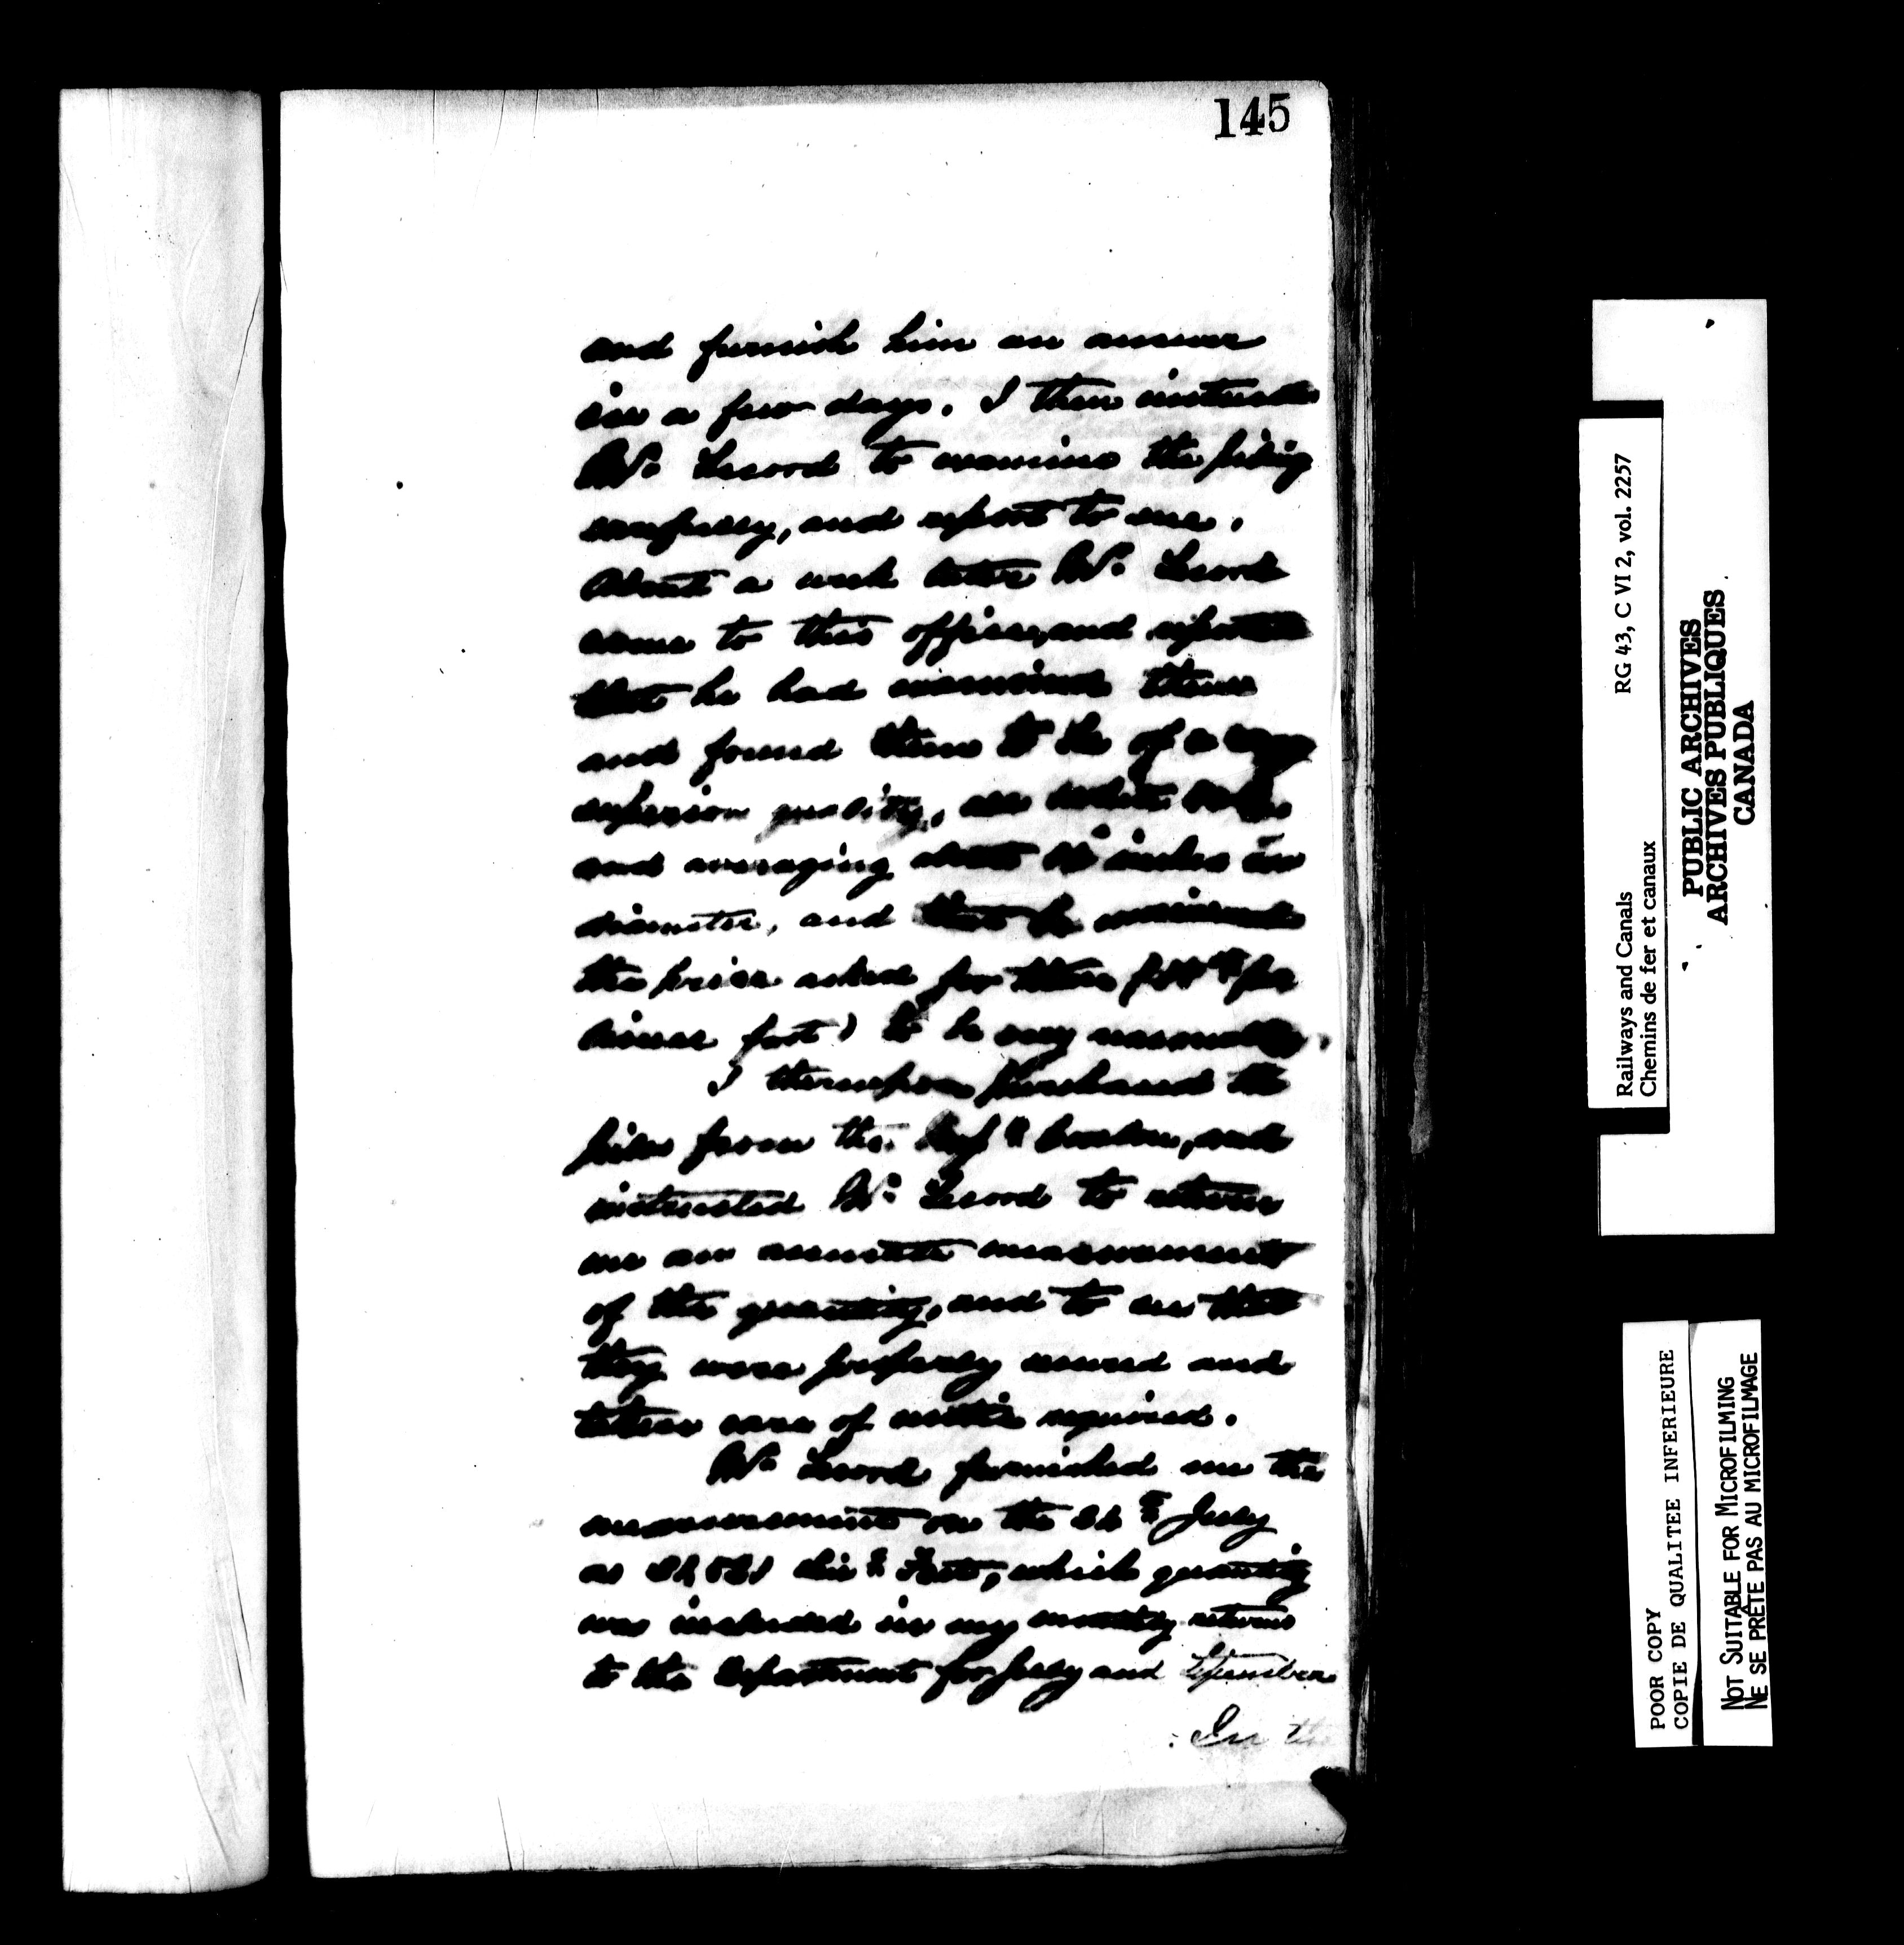 145
and furnish him an answer
in a few days. I then instructed
Mr. Lesord to examine the piling
carefully, and report to me.
About a week later Mr. Lesord
came to this office, and reported
that he had examined them
and found them to be of a very
superior quality,
and averaging about inches in
diameter, and that he considered
the price asked for them per
lineal foot) to be very reasonable.
I thereupon purchased the
piles from the and
instructed Mr. Lesord to return
me an accurate measurement
of the quantity, and to see that
they were properly secured and
taken care of until required.
Mr. Lesord furnished me the
measurement on the July
as Feet, which quantity
was included in my monthly returns
to the Department for July and
In the
RG 43, C VI 2, vol. 2257
Railways and Canals
Chemins de fer et canaux
PUBLIC ARCHIVES
ARCHIVES PUBLIQUES
CANADA
POOR COPY
COPIE DE QUALITEE INFERIEURE
NOT SUITABLE FOR MICROFILMING
NE SE PRÊTE PAS AU MICROFILMAGE